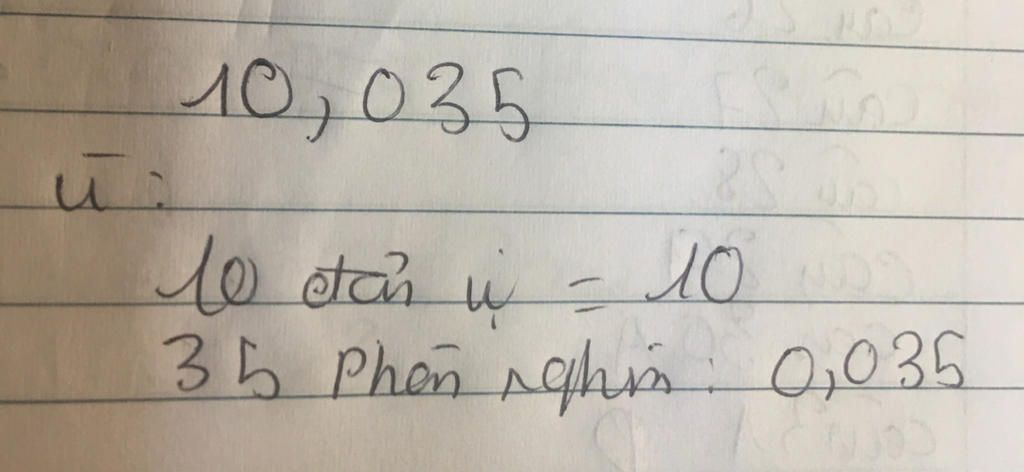 10,035
vì:
10 đơn vị = 10
35 phần nghìn: 0,035